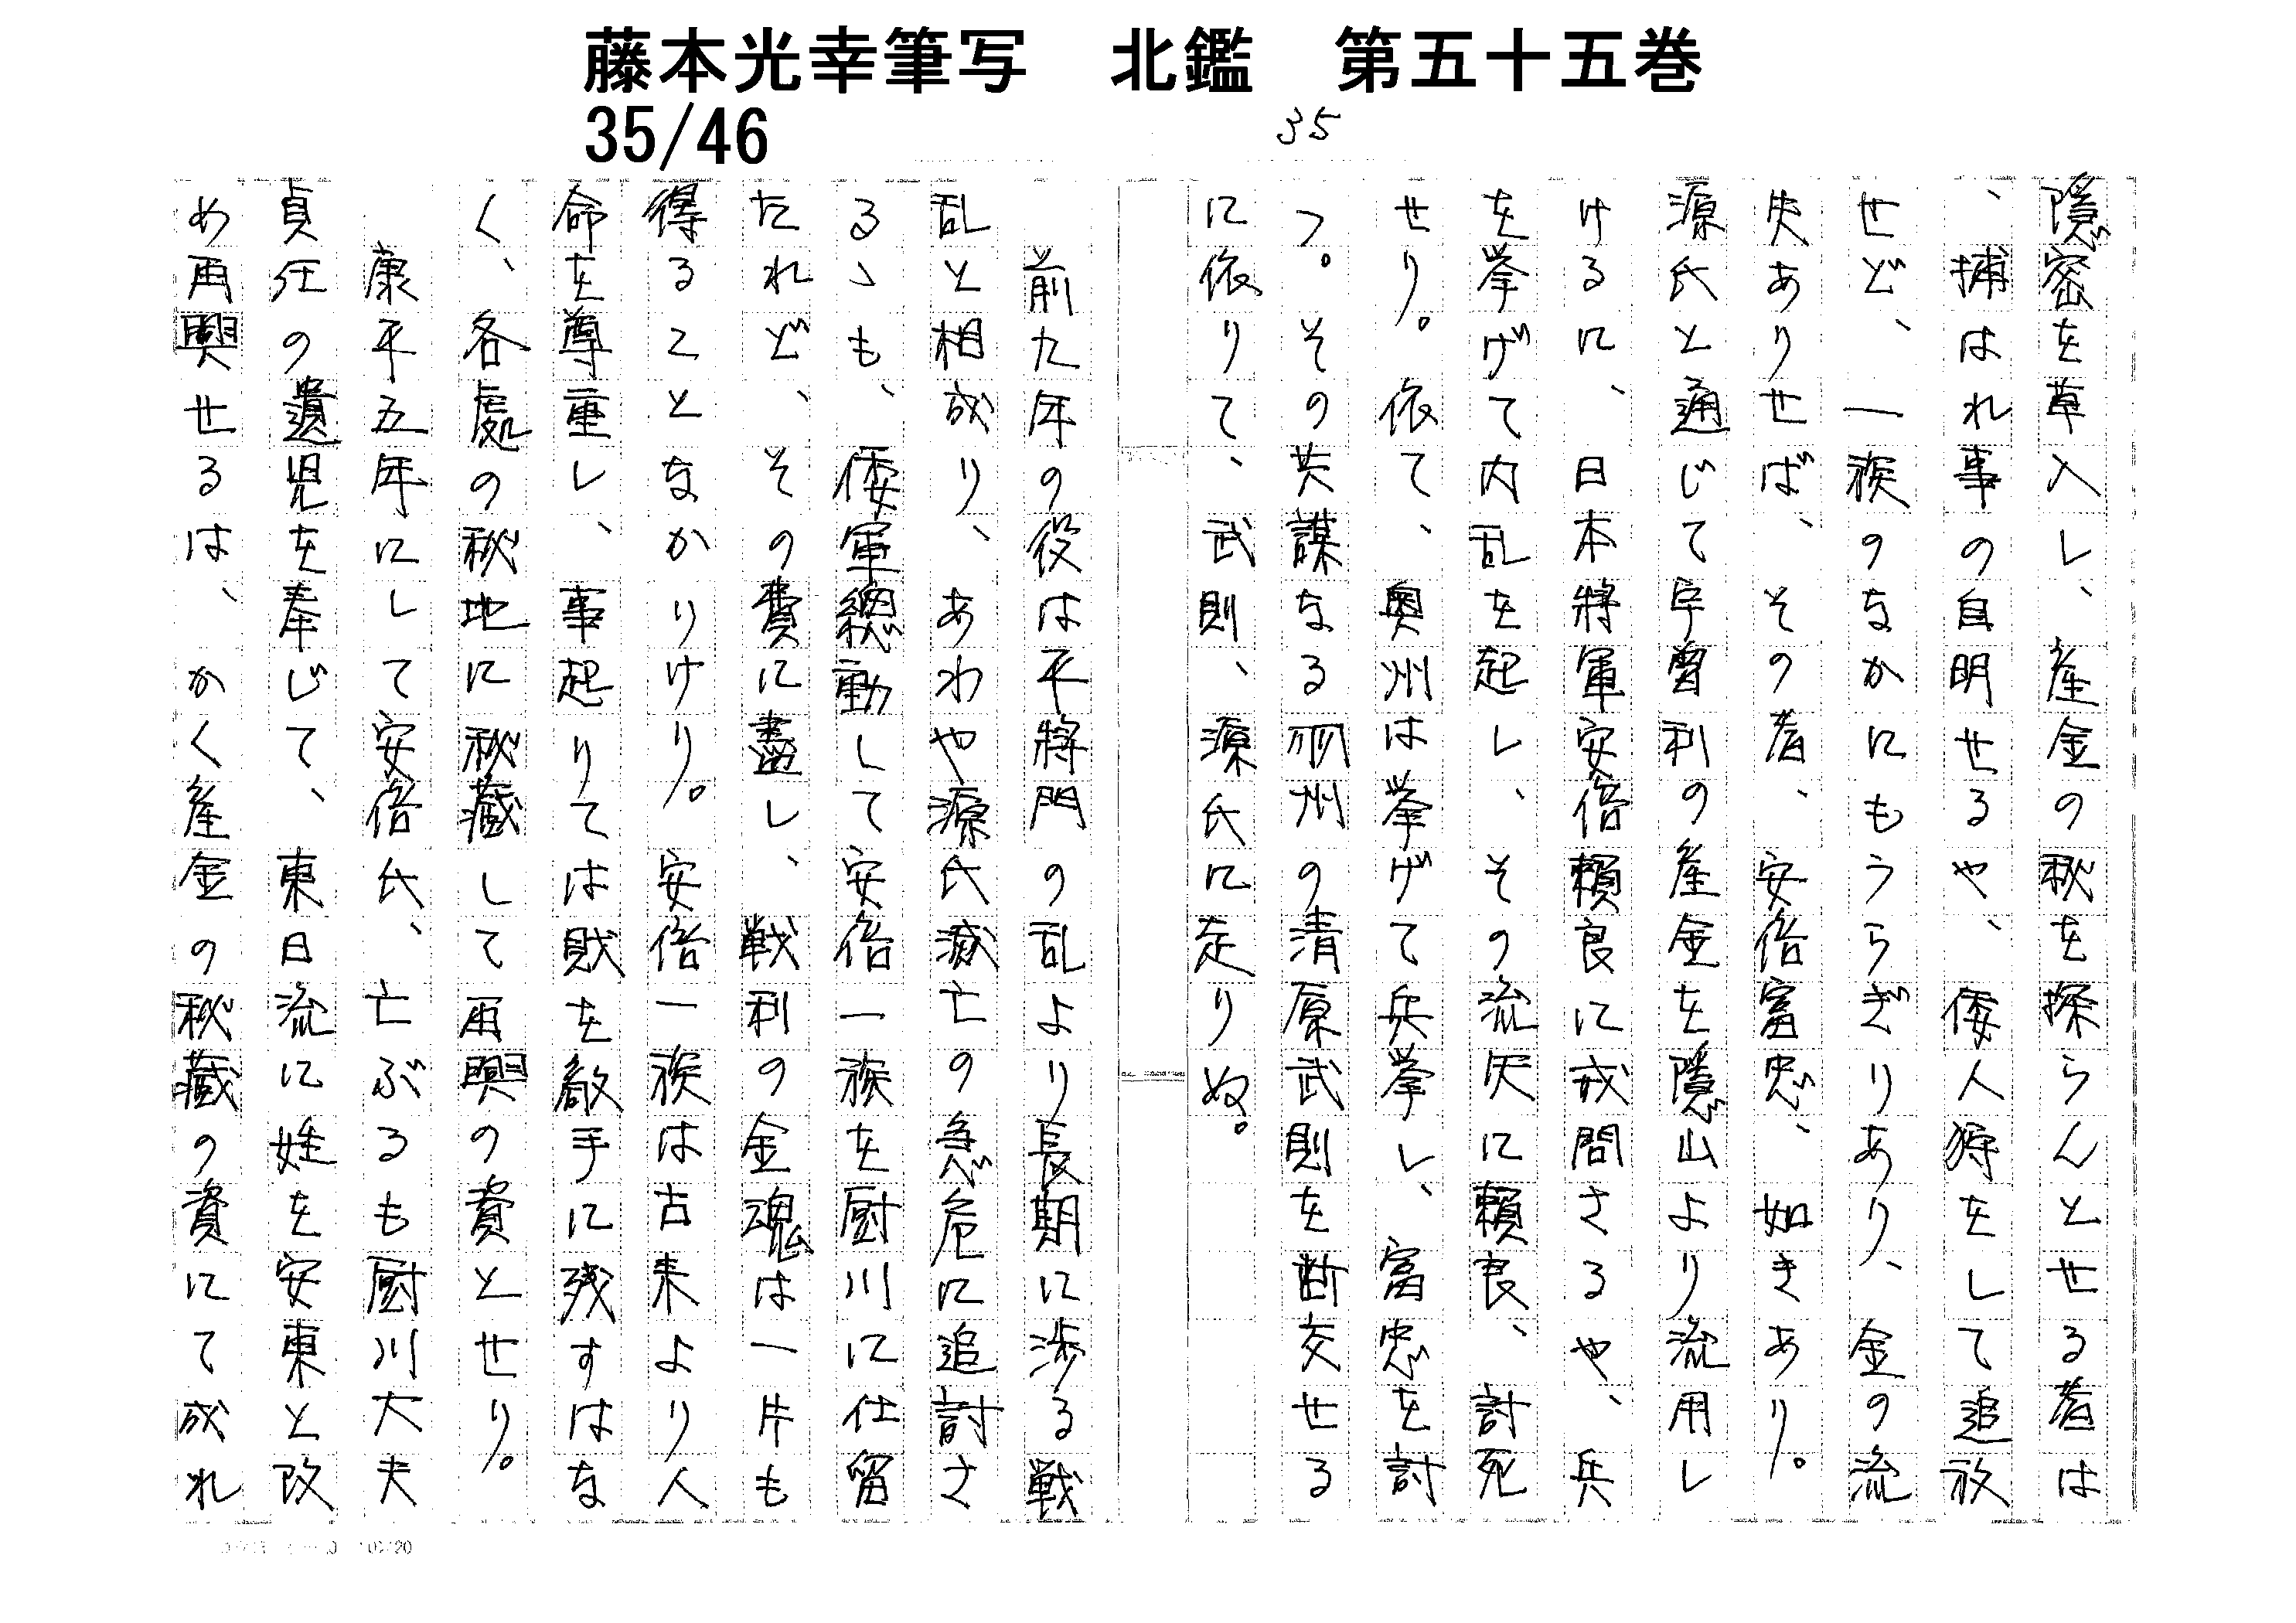 藤本光幸筆写　北鑑　第五十五巻
35/46
35
隠密を草入し、産金の秘を探らんとせる者は
、捕はれ事の自明せるや、倭人狩をして追放
せど、一族のなかにもうらぎりあり、金の流
失ありせば、その者、安倍富忠、如きあり。
源氏と通じて宇曽利の産金を隠山より流用し
けるに、日本將軍安倍頼良に戒問さるや、兵
を挙げて内乱を起し、その流矢に頼良、討死
せり。依て、奥州は挙げて兵挙し、富忠を討
つ。その共謀なる羽州の清原武則を断交せる
に依りて、武則、源氏に走りぬ。
前九年の役は平將門の乱より長期に渉る戦
乱と相成り、あわや源氏滅亡の急危に追討さ
るゝも、倭軍總動して安倍一族を厨川に仕留
たれど、その費に盡し、戦利の金魂は一片も
得ることなかりけり。安倍一族は古来より人
命を尊重し、事起りては財を敵手に残すはな
く、各處の秘地に秘藏して再興の資とせり。
康平五年にして安倍氏、亡ぶるも厨川大夫
貞任の遺児を奉じて、東日流に姓を安東と改
め再興せるは、かく産金の秘藏の資にて成れ